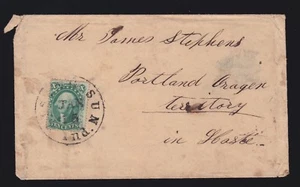 Mr James Stephens
Portland Oregen
territory
in Haste
SUN PU